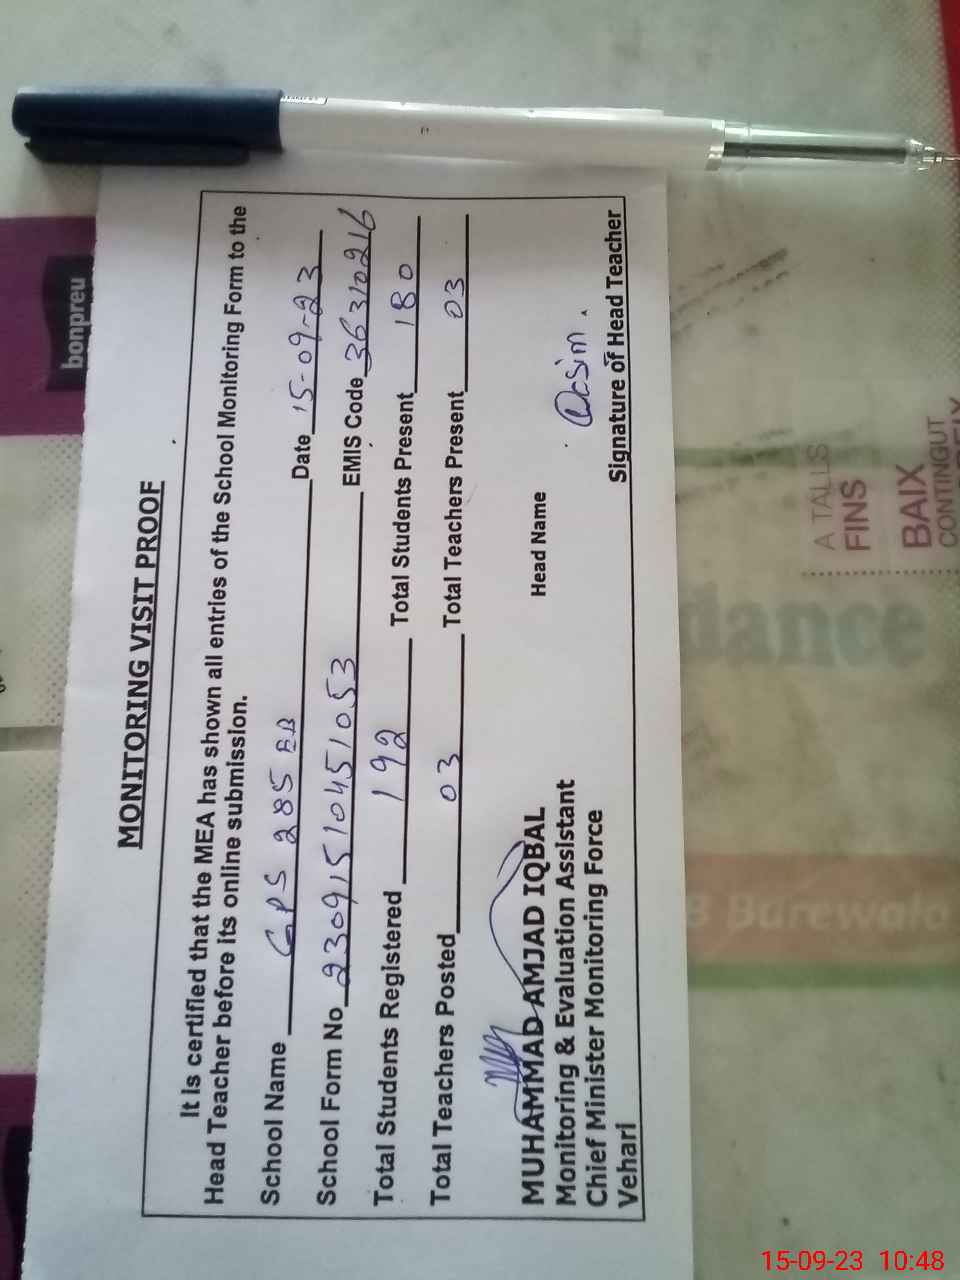 MONITORING VISIT PROOF
It is certified that the MEA has shown all entries of the School Monitoring Form to the
Head Teacher before its online submission.
School Name GPS 285 EB Date 15-09-23
School Form No 23091510451053 EMIS Code 36310216
Total Students Registered 192 Total Students Present 180
Total Teachers Posted 03 Total Teachers Present 03
MUHAMMAD AMJAD IQBAL
Monitoring & Evaluation Assistant
Chief Minister Monitoring Force
Vehari
Head Name
Signature of Head Teacher
bonpreu
A TALLS
FINS
BAIX
CONTINGUT
dance
B Burewala
15-09-23 10:48